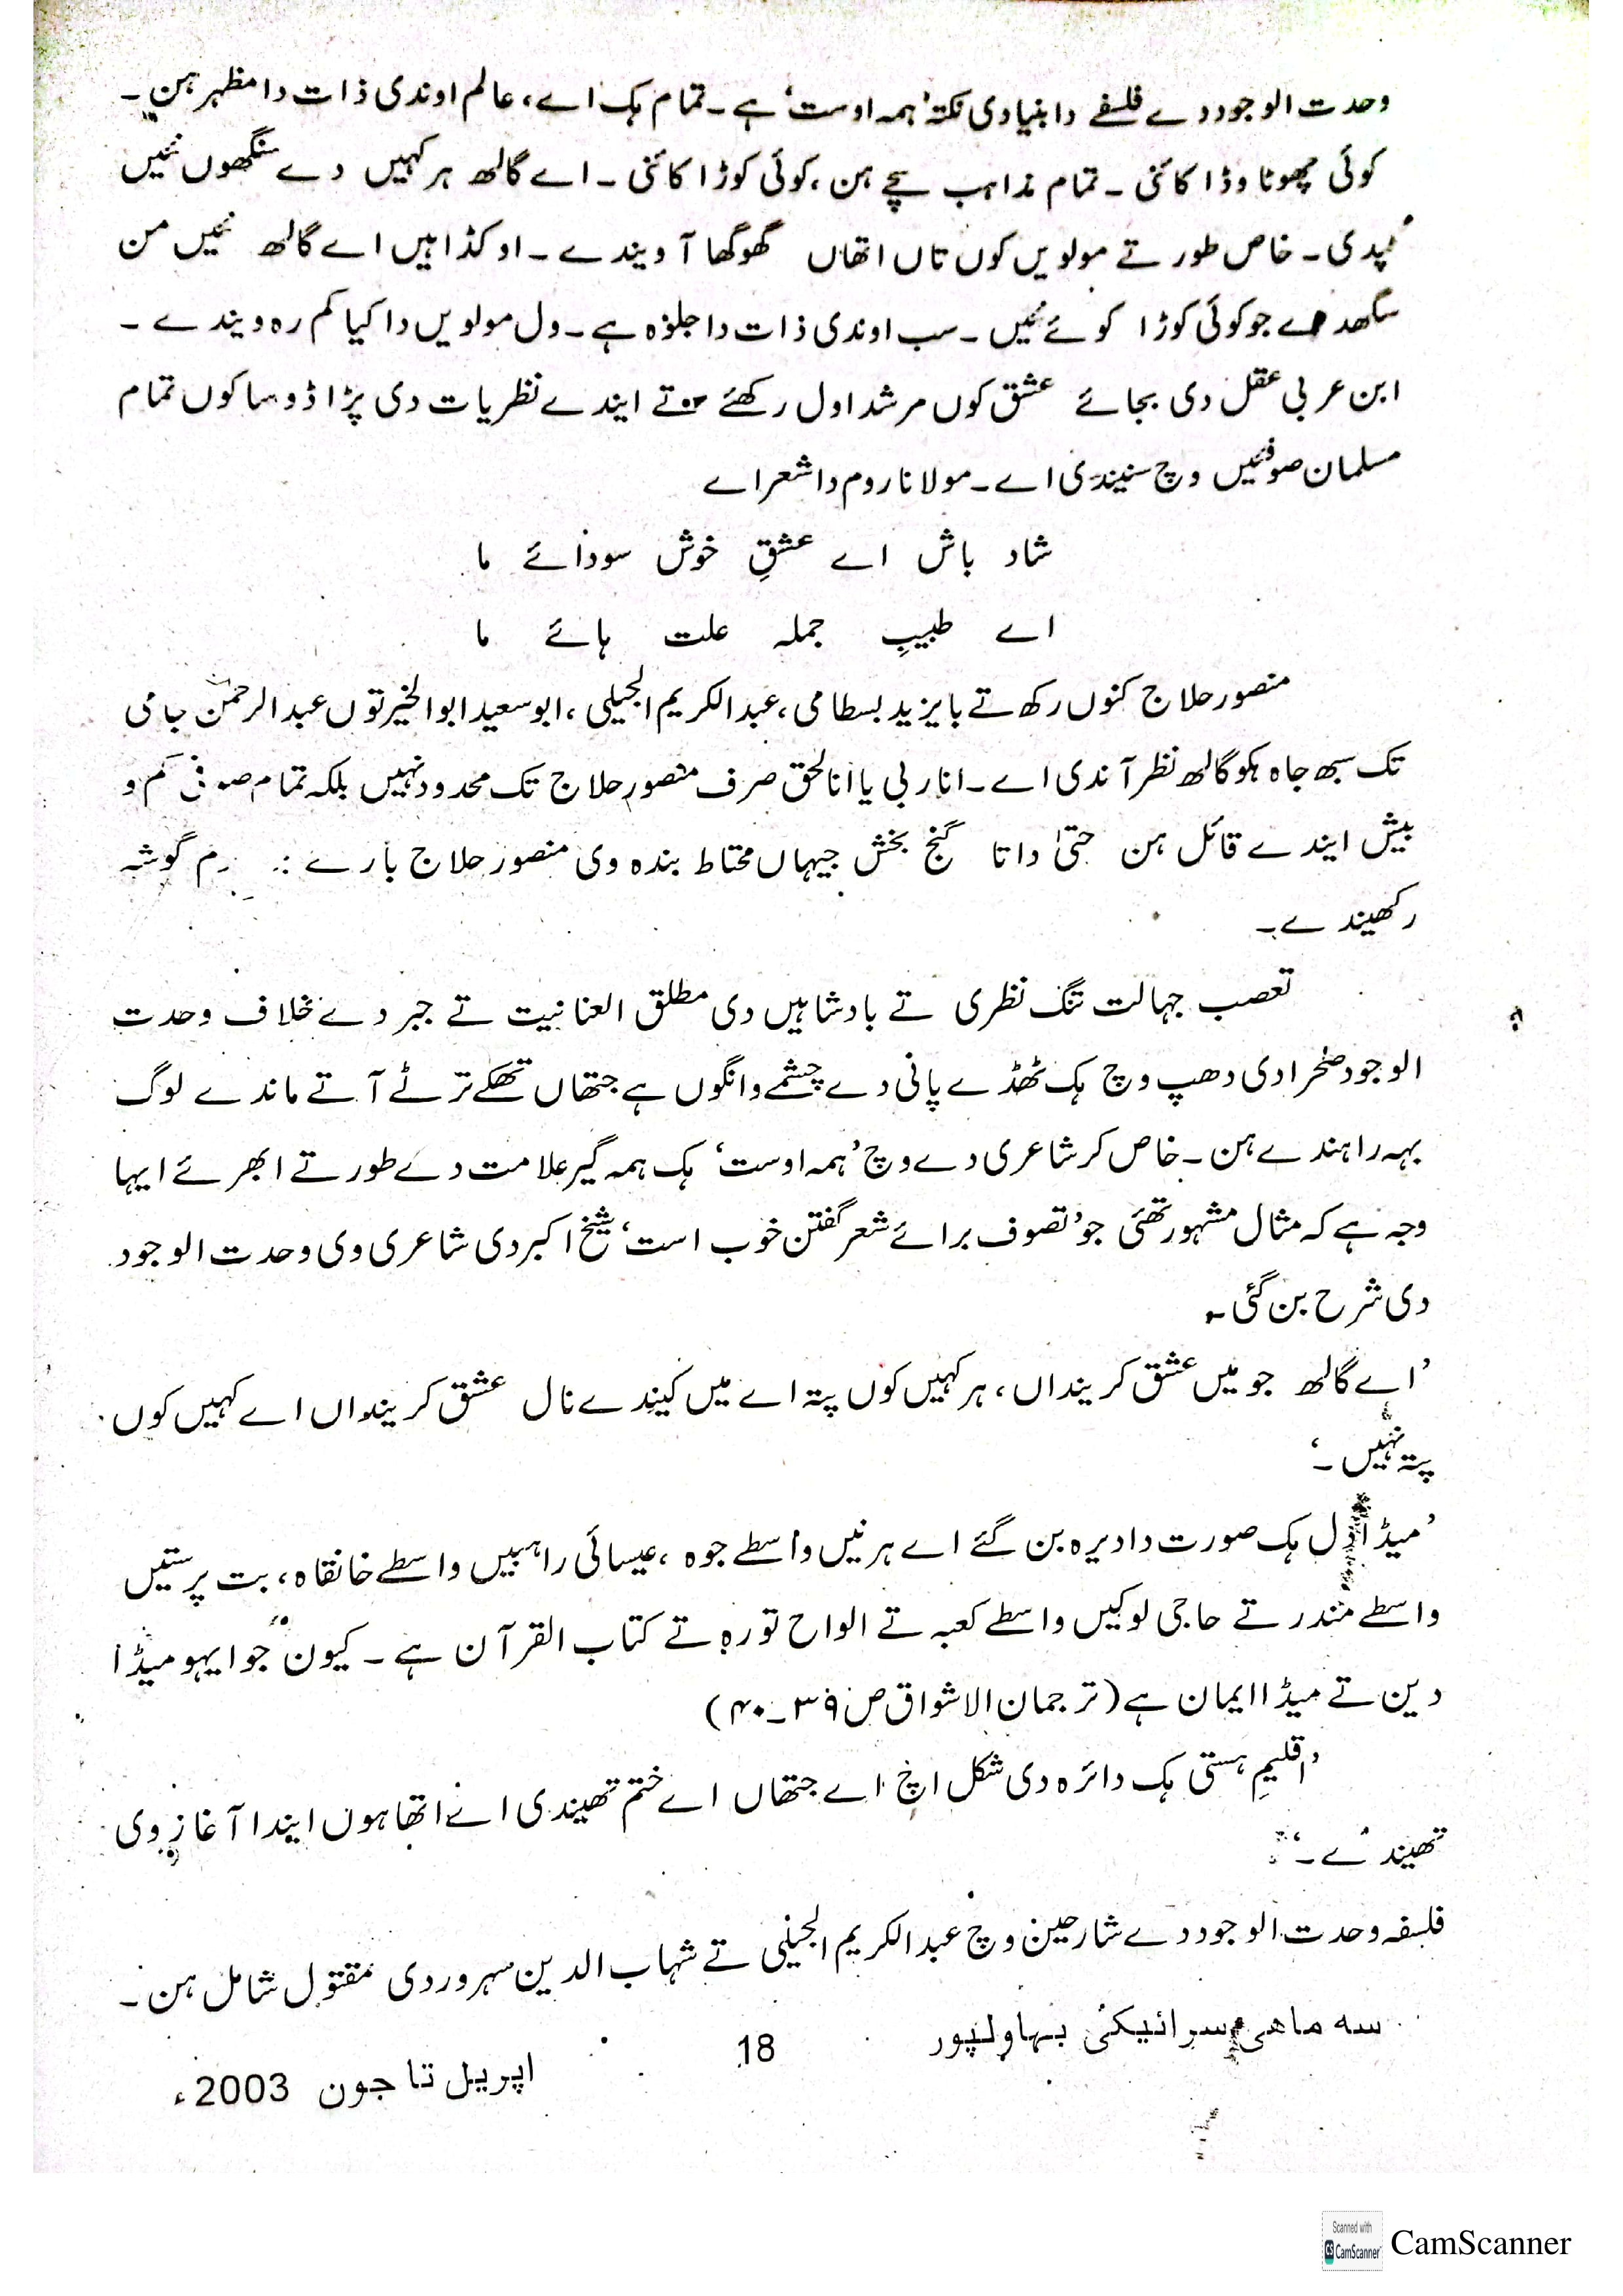 وحدت الوجود دے فلسفے دا بنیادی نکتہ ’ہمہ اوست‘ ہے۔ تمام ہک اے، عالم اوندی ذات دا مظہر ہن۔
کوئی چھوٹا وڈا کائنی۔ تمام مذاہب سچے ہن، کوئی کوڑا کائنی۔ اے گالھ ہر کہیں دے سنگھوں نئیں
ٹپدی۔ خاص طور تے مولویں کوں تاں اتھاں گھوگھا آ ویندے۔ او کڈاہیں اے گالھ نئیں من
سگھدے جو کوئی کوڑا کوئے نئیں۔ سب اوندی ذات دا جلوہ ہے۔ ول مولویں دا کیا کم رہ ویندے۔
ابن عربی عقل دی بجائے عشق کوں مرشد اول رکھئے تے ایندے نظریات دی پڑاڈو ساکوں تمام
مسلمان صوفئیں وچ سنیندی اے۔ مولانا روم دا شعر اے
شاد باش اے عشقِ خوش سودائے ما
اے طبیبِ جملہ علت ہائے ما
منصور حلاج کنوں رکھ تے بایزید بسطامی، عبدالکریم الجیلی، ابو سعید ابوالخیر توں عبدالرحمٰن جامی
تک سبھ جاہ ہکو گالھ نظر آندی اے۔ انا ربی یا انا لحق صرف منصور حلاج تک محدود نہیں بلکہ تمام صوفی کم و
بیش ایندے قائل ہن حتیٰ داتا گنج بخش جیہاں محتاط بندہ وی منصور حلاج بارے نرم گوشہ
رکھیندے۔
تعصب جہالت تنگ نظری تے بادشاہیں دی مطلق العنانیت تے جبر دے خلاف وحدت
الوجود صحرا دی دھپ وچ ہک ٹھڈے پانی دے چشمے وانگوں ہے جتھاں تھکے ترٹے آتے ماندے لوگ
بہہ راہندے ہن۔ خاص کر شاعری دے وچ ’ہمہ اوست‘ ہک ہمہ گیر علامت دے طور تے ابھرئے ایہا
وجہ ہے کہ مثال مشہور تھئی جو ’تصوف برائے شعر گفتن خوب است‘ شیخ اکبر دی شاعری وی وحدت الوجود
دی شرح بن گئی۔
’اے گالھ جو میں عشق کرینداں، ہر کہیں کوں پتہ اے میں کیندے نال عشق کرینداں اے کہیں کوں
پتہ نہیں۔‘
’میڈا دل ہک صورت دا دیرہ بن گئے اے ہرنیں واسطے جوہ، عیسائی راہبیں واسطے خانقاہ، بت پرستیں
واسطے مندر تے حاجی لوکیں واسطے کعبہ تے الواح تورہ تے کتاب القرآن ہے۔ کیوں جو ایہو میڈا
دین تے میڈا ایمان ہے (ترجمان الاشواق ص ۳۹۔۴۰)
’اقلیمِ ہستی ہک دائرہ دی شکل اچ اے جتھاں اے ختم تھیندی اے اتھاہوں ایندا آغاز وی
تھیندے۔‘
فلسفہ وحدت الوجود دے شارحین وچ عبدالکریم الجیلی تے شہاب الدین سہروردی مقتول شامل ہن۔
سہ ماہی سرائیکی بہاولپور
18
اپریل تا جون 2003ء
Scanned with
CS CamScanner
CamScanner